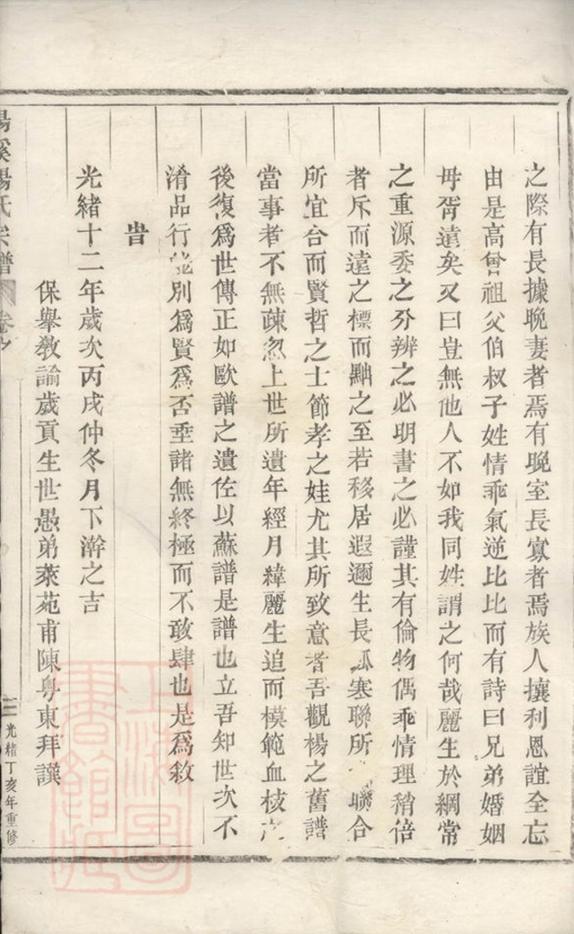 之際有長據晚妻者焉有晚室長寡者焉族人攘利恩誼全忘
由是高曾祖父伯叔子姓情乖氣逆比比而有詩曰兄弟婚姻
毋胥遠矣又曰豈無他人不如我同姓謂之何哉麗生於綱常
之重源委之分辨之必明書之必謹其有倫物偶乖情理稍倍
者斥而遠之標而黜之至若移居遐邇生長孤寒聯所聯合
所宜合而賢哲之士節孝之娃尤其所致意者吾觀楊之舊譜
當事者不無疎忽上世所遺年經月緯麗生追而模範血核
後復爲世傳正如歐譜之遺佐以蘇譜是譜也立吾知世次不
淆品行能別爲賢爲否垂諸無終極而不敢肆也是爲敘
旹
光緒十二年歲次丙戌仲冬月下澣之吉
保舉教諭歲貢生世愚弟萊苑甫陳粵東拜譔
楊溪楊氏宗譜
卷之
二
光緒丁亥年重修
上海圖書館藏